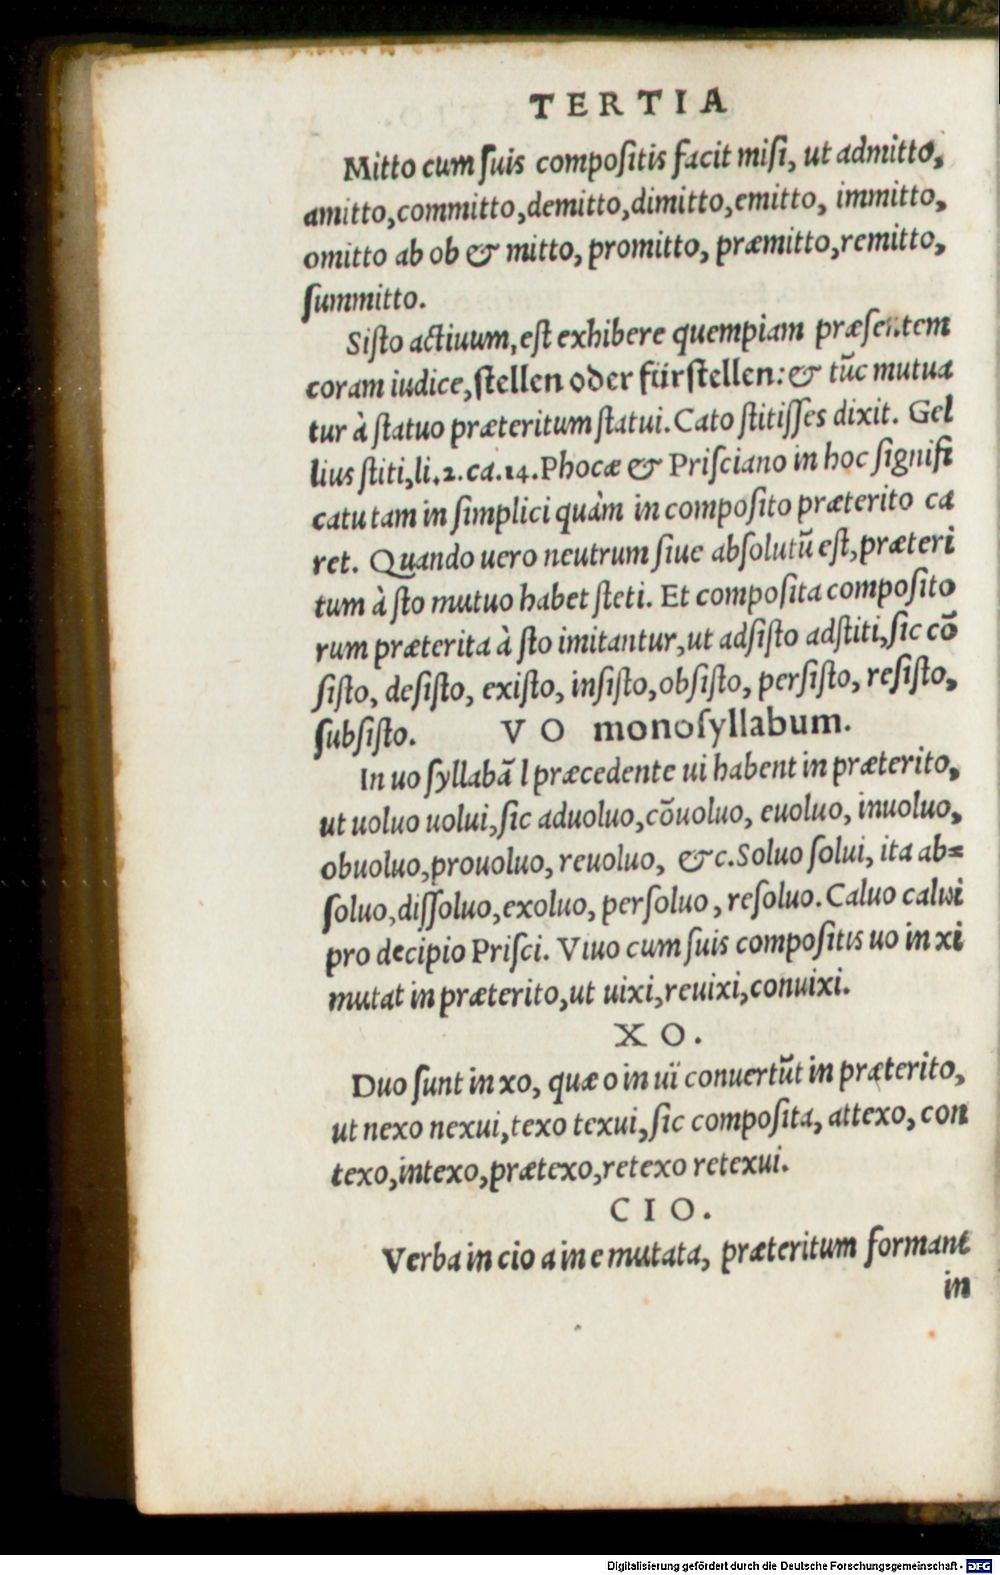 TERTIA
Mitto cum ſuis compoſitis facit miſi, ut admitto,
amitto, committo, demitto, dimitto, emitto, immitto,
omitto ab ob & mitto, promitto, præmitto, remitto,
ſummitto.
Siſto actiuum, eſt exhibere quempiam præſentem
coram iudice, ſtellen oder fürſtellen: & tūc mutua
tur à ſtatuo præteritum ſtatui. Cato ſtitiſſes dixit. Gel
lius ſtiti, li. 2. ca. 14. Phocæ & Priſciano in hoc ſignifi
catu tam in ſimplici quàm in compoſito præterito ca
ret. Quando uero neutrum ſiue abſolutū eſt, præteri
tum à ſto mutuo habet ſteti. Et compoſita compoſito
rum præterita à ſto imitantur, ut adſiſto adſtiti, ſic cō
ſiſto, deſiſto, exiſto, inſiſto, obſiſto, perſiſto, reſiſto,
ſubſiſto. VO monoſyllabum.
In uo ſyllabā l præcedente ui habent in præterito,
ut uoluo uolui, ſic aduoluo, cōuoluo, euoluo, inuoluo,
obuoluo, prouoluo, reuoluo, &c. Soluo ſolui, ita ab=
ſoluo, diſſoluo, exoluo, perſoluo, reſoluo. Caluo calui
pro decipio Priſci. Viuo cum ſuis compoſitis uo in xi
mutat in præterito, ut uixi, reuixi, conuixi.
XO.
Duo ſunt in xo, quæ o in uï conuertūt in præterito,
ut nexo nexui, texo texui, ſic compoſita, attexo, con
texo, intexo, prætexo, retexo retexui.
CIO.
Verba in cio a in e mutata, præteritum formant
in
Digitalisierung gefördert durch die Deutsche Forschungsgemeinschaft - DFG